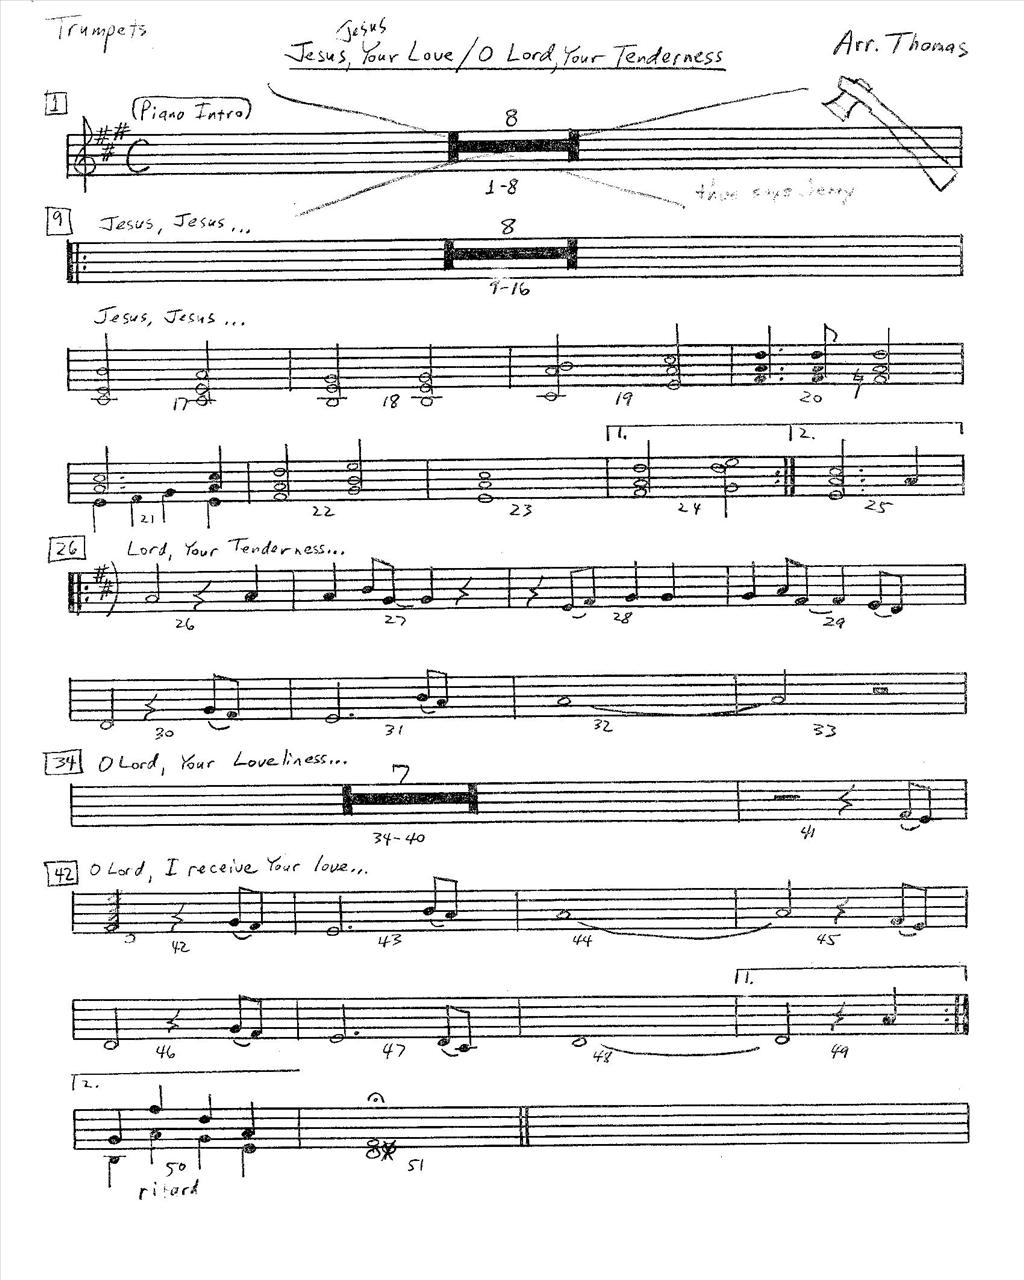 Trumpets
Jesus
Jesus, Your Love / O Lord, Your Tenderness
Arr. Thomas
1
(Piano Intro)
8
1-8
thus says Jerry
9
Jesus, Jesus...
8
9-16
Jesus, Jesus...
17 18 19 20
1. 2.
21 22 23 24 25
26
Lord, Your Tenderness...
26 27 28 29
30 31 32 33
34
O Lord, Your Loveliness...
7
34-40 41
42
O Lord, I receive Your love...
42 43 44 45
1.
46 47 48 49
2.
50 51
ritard